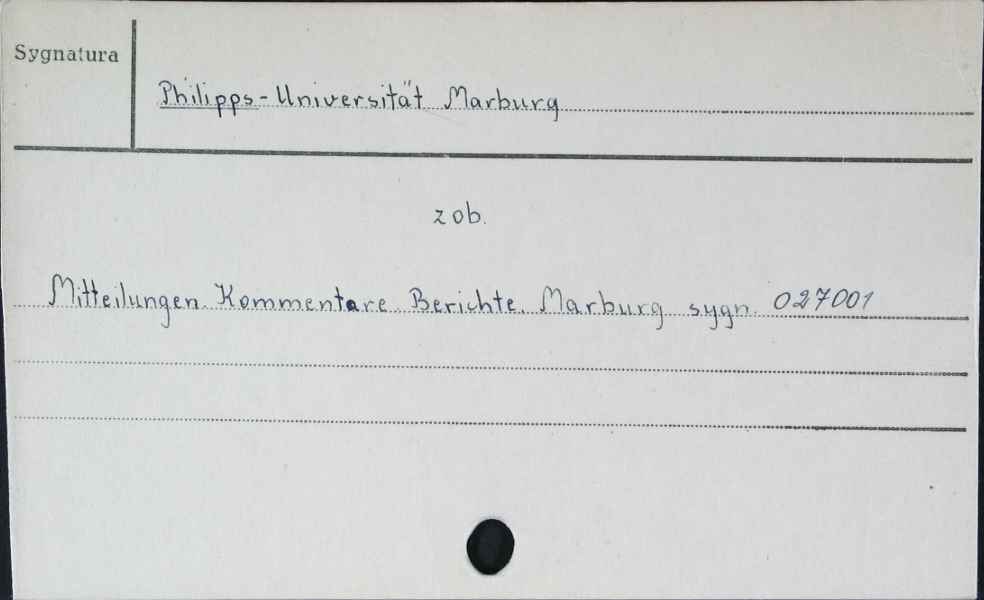 Sygnatura
Philipps-Universität Marburg
zob.
Mitteilungen. Kommentare. Berichte. Marburg sygn. 027001